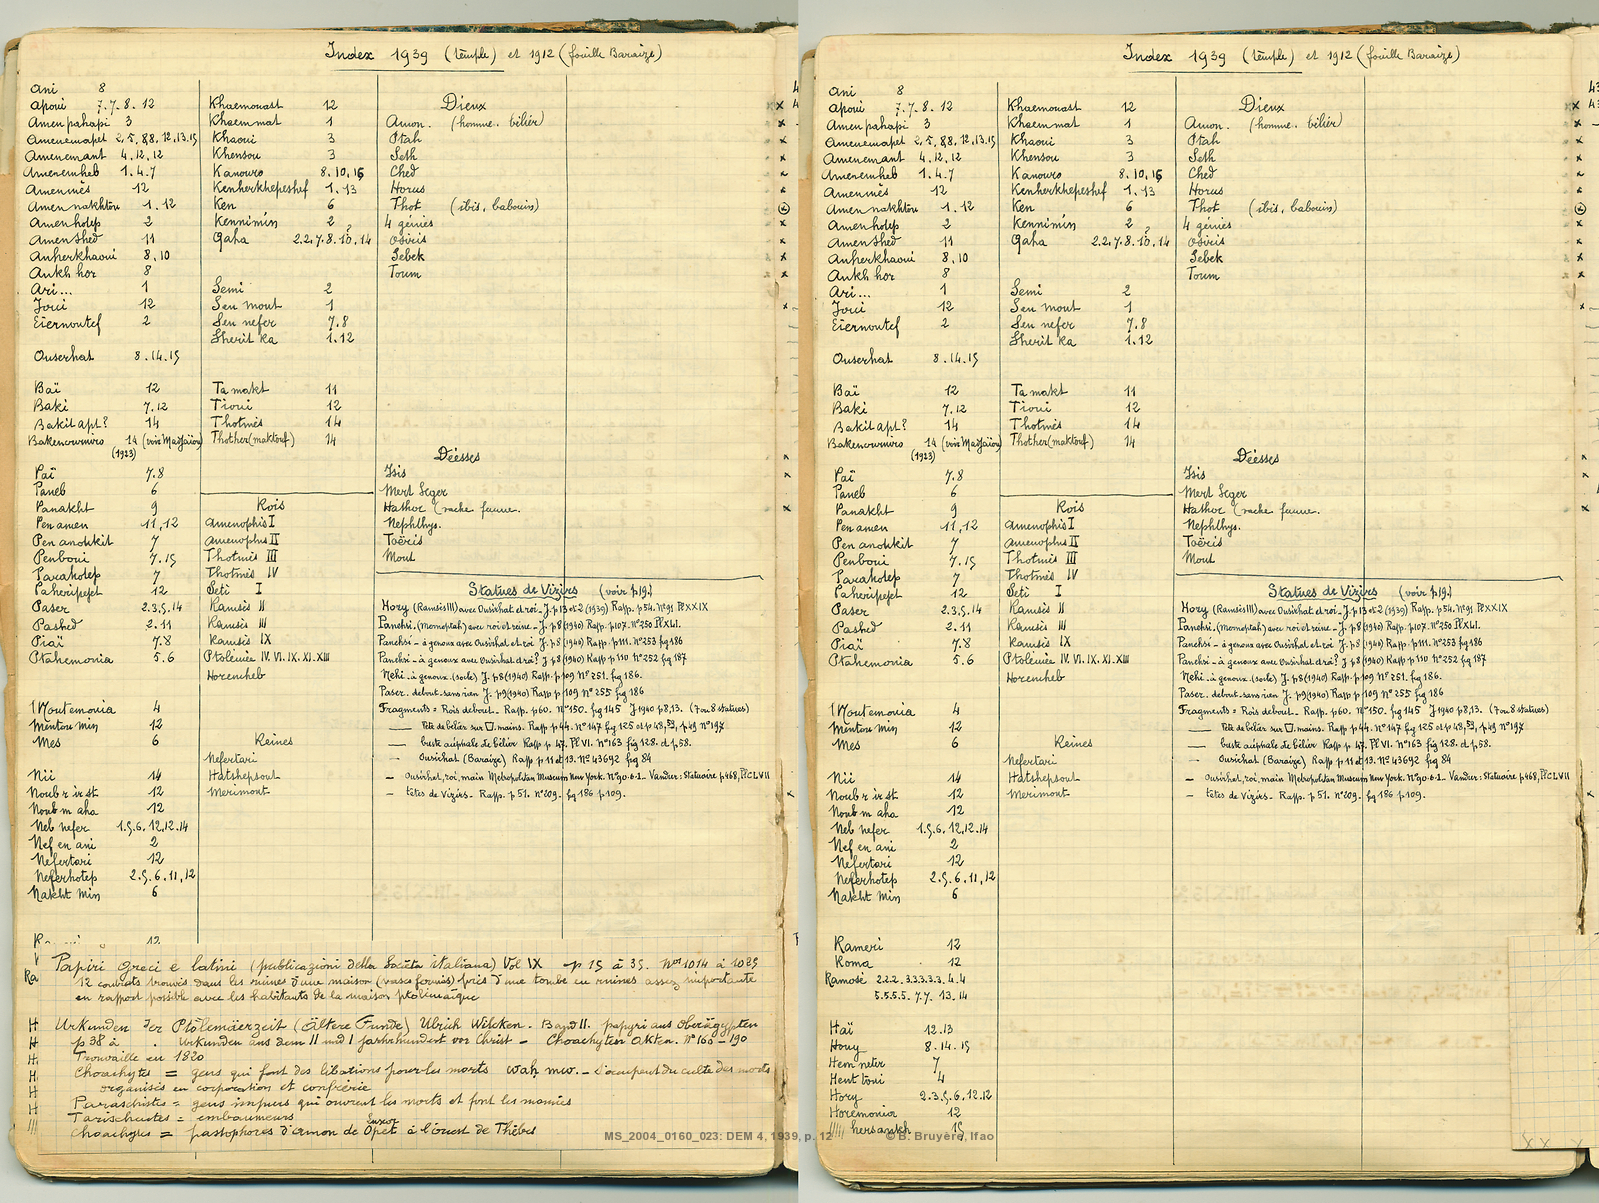 Index 1939 (temple) et 1912 (fouille Baraize)
Ani 8
Apoui 7.7.8.12
Amenpahapi 3
Amenemapet 2,5,8,8,12.13.15
Amenemant 4.12.12
Amenemheb 1.4.7
Amenmès 12
Amennakhtou 1.12
Amenhotep 2
Amenshed 11
Anherkhaoui 8,10
Ankh hor 8
Ari... 1
Jorci 12
Eiernoutef 2
Ouserhat 8.14.15
Baï 12
Baki 7.12
Bakit apt? 14
Bakenourniro 14 (voir Madjaiou)
(1923)
Paï 7.8
Paneb 6
Panakht 9
Pen amen 11,12
Pen anoukit 7
Penboui 7.15
Parahotep 7
Paheripejet 12
Paser 2.3.5.14
Pashed 2.11
Piaï 7.8
Ptahemonia 5.6
Moutemonia 4
Mentou min 12
Mes 6
Nii 14
Noub r ir st 12
Noub m aha 12
Neb nefer 1.5.6.12,12.14
Nef en ani 2
Nefertari 12
Neferhotep 2.5.6.11,12
Nakht min 6
Khaemouast 12
Khaemmat 1
Khaoui 3
Khensou 3
Kanouro 8.10,16
Kenherkhepeshef 1.13
Ken 6
Kennimin 2
Qaha 2.2,7.8.10.14
Semi 2
Sen mout 1
Sen nefer 7.8
Sherit ka 1.12
Tamakt 11
Tioui 12
Thotmès 14
Thother (maktouf) 14
Rois
Amenophis I
Amenophis II
Thotmès III
Thotmès IV
Seti I
Ramsès II
Ramsès III
Ramsès IX
Ptolémée IV. VI. IX. XI. XIII
Horemheb
Reines
Nefertari
Hatshepsout
Merimont
Dieux
Amon. (homme. bélier)
Ptah
Seth
Ched
Horus
Thot (ibis, babouin)
4 génies
Osiris
Sebek
Toum
Déesses
Isis
Mert Seger
Hathor (vache femme.
Nephthys.
Toëris
Mout
Statues de Vizirs (voir p19)
Hory (Ramsès III) avec Ousirhat et roi - J. p13 et 2 (1939) Rapp. p54. n°91 Pl XXIX
Panehsi. (Momeptah) avec roi et reine - J. p8 (1940) Rapp. p107. N°250 Pl XLI.
Panehsi - à genoux avec Ousirhat et roi J. p8 (1940) Rapp. p111. N°253 fig 186
Panehsi - à genoux avec Ousirhat et roi? J. p8 (1940) Rapp p110 N°252 fig 187
Nehi - à genoux. (socle) J. p8 (1940) Rapp. p109 N° 251. fig 186.
Paser. debout. sans rien J. p9 (1940) Rapp p109 N° 255 fig 186
Fragments = Rois debout. Rapp. p60. N°150. fig 145 J 1940 p8,13. (7 ou 8 statues)
— tête de bélier sur mains. Rapp p44. N°147 fig 125 et p48,53, p49 n°197
— buste acéphale de bélier Rapp p 47. Pl VI. N°163 fig 128. et p,58.
— Ousirhat (Baraize) Rapp p11 et 13. N° 43692 fig 84
- Ousirhat, roi, main Metropolitan Museum New York. N°90.6.1 - Vandier: Statuaire p468, Pl CLVII
- têtes de Vizirs - Rapp. p51. n°209. fig 186 p109.
12
Ra
Papiri greci e latini (publicazioni della Societa italiana) Vol IX p 15 à 35. Nos 1014 à 1025
12 contrats trouvés dans les ruines d'une maison (vases fermés) près d'une tombe en ruines assez importante
en rapport possible avec les habitants de la maison ptolémaïque
Urkunden der Ptolemäerzeit (Ältere Funde) Ulrich Wilcken. Band II. papyri aus Oberägypten
p 38 à . Urkunden aus dem II und I Jarhrhundert vor Christ - Choachyten Akten. N° 160 - 190
Trouvaille en 1820
Choachytes = gens qui font des libations pour les morts wah mw. - s'occupent du culte des morts
organisés en corporation et confrérie
Paraschistes = gens impurs qui ouvrent les morts et font les momies
Tarischeutes = embaumeurs
Choachytes = pastophores d'amon de Opet à l'ouest de Thèbes
Luxor
Index 1939 (temple) et 1912 (fouille Baraize)
Ani 8
Apoui 7.7.8.12
Amenpahapi 3
Amenemapet 2,5,8,8,12.13.15
Amenemant 4.12,12
Amenemheb 1.4.7
Amenmès 12
Amennakhtou 1.12
Amenhotep 2
Amenshed 11
Anherkhaoui 8,10
Ankh hor 8
Ari... 1
Jorci 12
Eiernoutef 2
Ouserhat 8.14.15
Baï 12
Baki 7.12
Bakit apt? 14
Bakenourniro 14 (voir Madjaiou)
(1923)
Paï 7.8
Paneb 6
Panakht 9
Pen amen 11,12
Pen anoukit 7
Penboui 7.15
Parahotep 7
Paheripejet 12
Paser 2.3.5.14
Pashed 2.11
Piaï 7.8
Ptahemonia 5.6
Moutemonia 4
Mentou min 12
Mes 6
Nii 14
Noub r ir st 12
Noub m aha 12
Neb nefer 1.5.6.12,12.14
Nef en ani 2
Nefertari 12
Neferhotep 2.5.6.11,12
Nakht min 6
Rameri 12
Roma 12
Ramose 2.2.2.3.3.3.3.3.4.4
5.5.5.5.7.7.13.14
Haï 12.13
Houy 8.14.15
Hem neter 7
Hent toui 4
Hory 2.3.5.6.12.12
Horemonia 12
hersankh 15
Khaemouast 12
Khaemmat 1
Khaoui 3
Khensou 3
Kanouro 8.10,16
Kenherkhepeshef 1.13
Ken 6
Kennimin 2
Qaha 2.2,7.8.10.14
Semi 2
Sen mout 1
Sen nefer 7.8
Sherit ka 1.12
Tamakt 11
Tioui 12
Thotmès 14
Thother (maktouf) 14
Rois
Amenophis I
Amenophis II
Thotmès III
Thotmès IV
Seti I
Ramsès II
Ramsès III
Ramsès IX
Ptolémée IV. VI. IX. XI. XIII
Horemheb
Reines
Nefertari
Hatshepsout
Merimont
Dieux
Amon. (homme. bélier)
Ptah
Seth
Ched
Horus
Thot (ibis, babouin)
4 génies
Osiris
Sebek
Toum
Déesses
Isis
Mert Seger
Hathor (vache femme.
Nephthys.
Toëris
Mout
Statues de Vizirs (voir p19)
Hory (Ramsès III) avec Ousirhat et roi - J. p13 et 2 (1939) Rapp. p54. n°91 Pl XXIX
Panehsi. (Momeptah) avec roi et reine - J. p8 (1940) Rapp. p107. N°250 Pl XLI.
Panehsi - à genoux avec Ousirhat et roi J. p8 (1940) Rapp. p111. N°253 fig 186
Panehsi - à genoux avec Ousirhat et roi? J. p8 (1940) Rapp p110 N°252 fig 187
Nehi - à genoux. (socle) J. p8 (1940) Rapp. p109 N° 251. fig 186.
Paser. debout. sans rien J. p9 (1940) Rapp p109 N° 255 fig 186
Fragments = Rois debout. Rapp. p60. N°150. fig 145 J 1940 p8,13. (7 ou 8 statues)
— tête de bélier sur mains. Rapp p44. N°147 fig 125 et p48,53, p49 n°197
— buste acéphale de bélier Rapp p 47. Pl VI. N°163 fig 128. et p,58.
— Ousirhat (Baraize) Rapp p11 et 13. N° 43692 fig 84
- Ousirhat, roi, main Metropolitan Museum New York. N°90.6.1 - Vandier: Statuaire p468, Pl CLVII
- têtes de Vizirs - Rapp. p51. n°209. fig 186 p109.
MS_2004_0160_023: DEM 4, 1939, p. 12 © B. Bruyère, Ifao